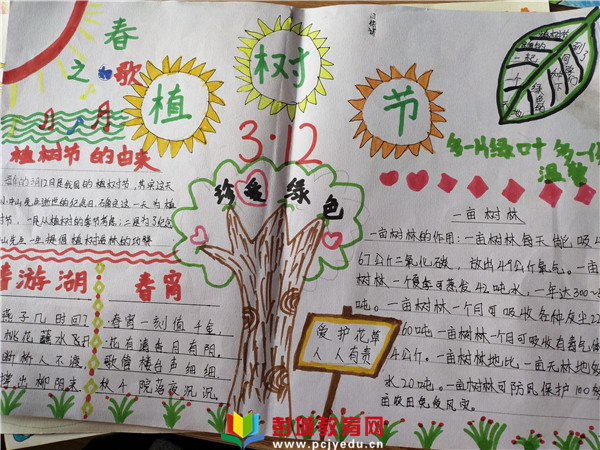 春
之和歌
植
树
节
3.12
植树节的由来
每年的3月12日是我国的植树节,其实这天
小中山先生逝世的纪念日,确定这一天为植
树节,一是从植树的季节考虑;二是为了纪念
山先生一生提倡植树造林的功赞
春游湖
燕子几时回?
桃花蘸水飞
断桥人不渡,
撑出柳阴来
春宵
春宵一刻值千金,
花有清香月有阴。
歌馆楼台声细细
秋千院落夜沉沉。
珍爱绿色
爱护花草
人人有责
多一片绿叶 多一份
温馨
一亩树林
一亩树林的作用:一亩树林每天能吸收
67公斤二氧化碳,放出49公斤氧气。一亩
树林一个夏季可蒸发42吨水,一年达300~
吨。一亩树林一个月可吸收各种灰尘22
60吨一亩树林一个月可吸收有毒气体
4公斤。一亩树林地比一亩无林地多
水20吨。一亩树林可防风保护100多
亩农田免受风灾。
彭博教育网
www.pcjyedu.cn